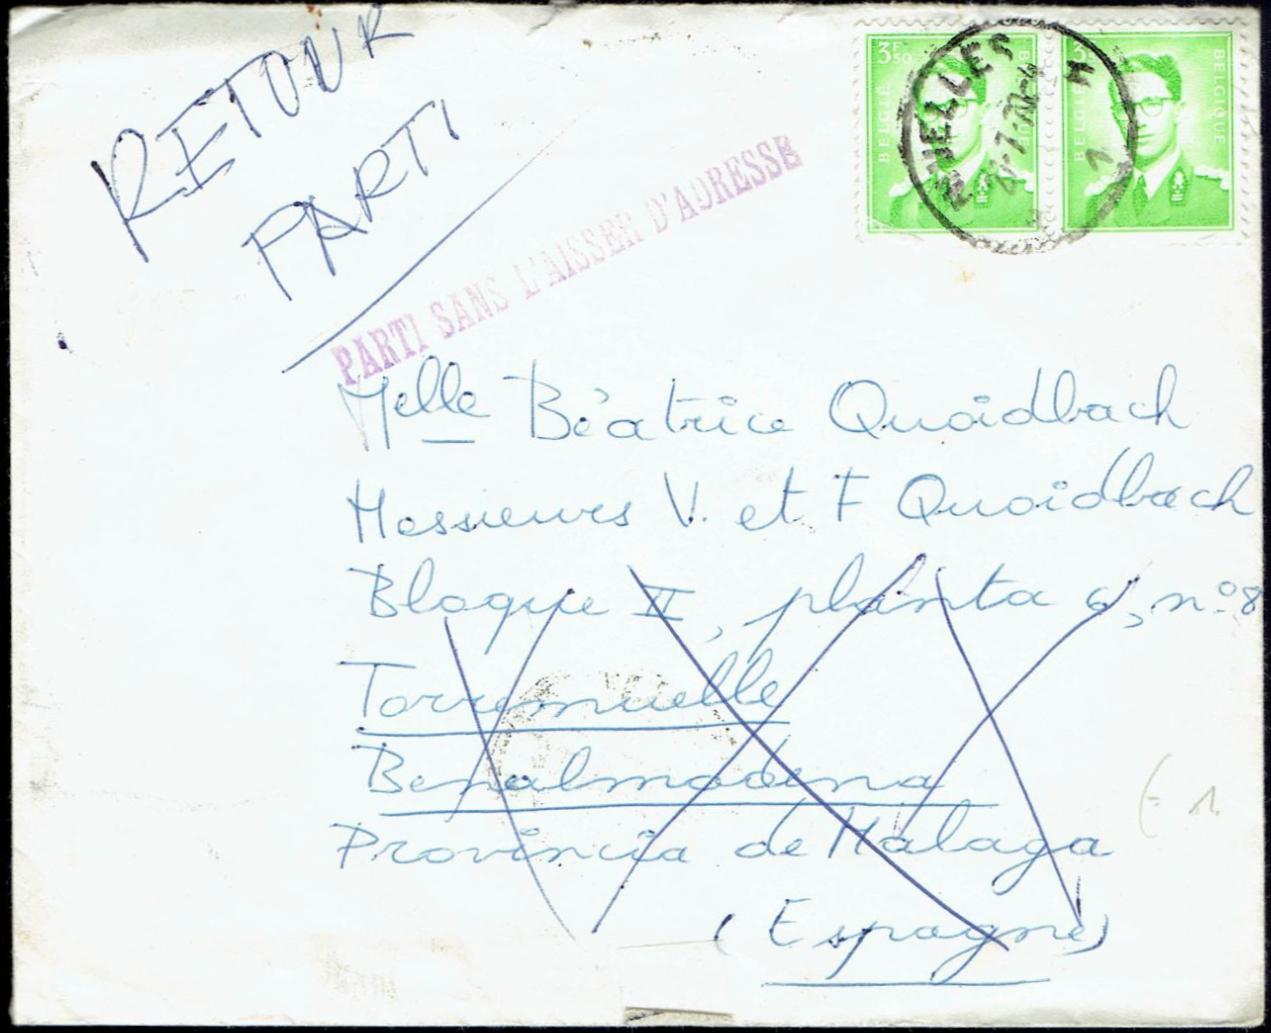 RETOUR
PARTI
PARTI SANS L'AISSER D'ADRESSE
3F 50
BELGIË
BELGIQUE
Melle Béatrice Quoidbach
Messieurs V. et F Quoidbach
Bloque II, planta 6, nº8
Torremuelle
Benalmadena
Provincia de Malaga
(Espagne)